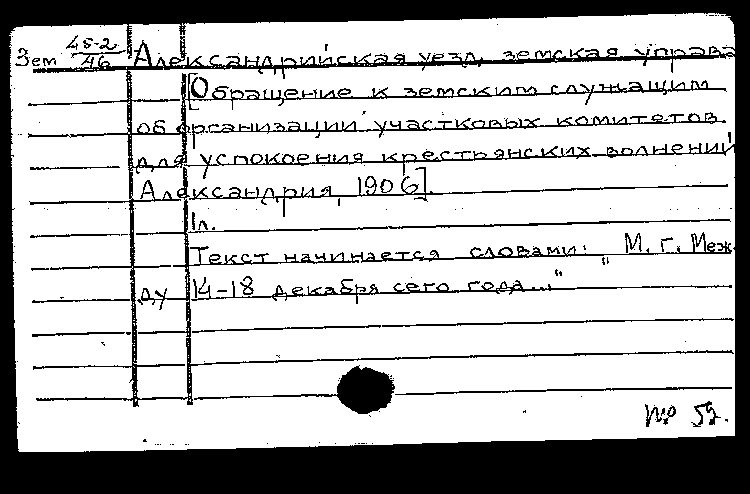 Зем 45-2/46 Александрийская уезд. земская управа
[Обращение к земским служащим
об организации участковых комитетов
для успокоения крестьянских волнений
Александрия, 1906].
1л.
Текст начинается словами: „М. г. Меж-
ду 14-18 декабря сего года..."
59.